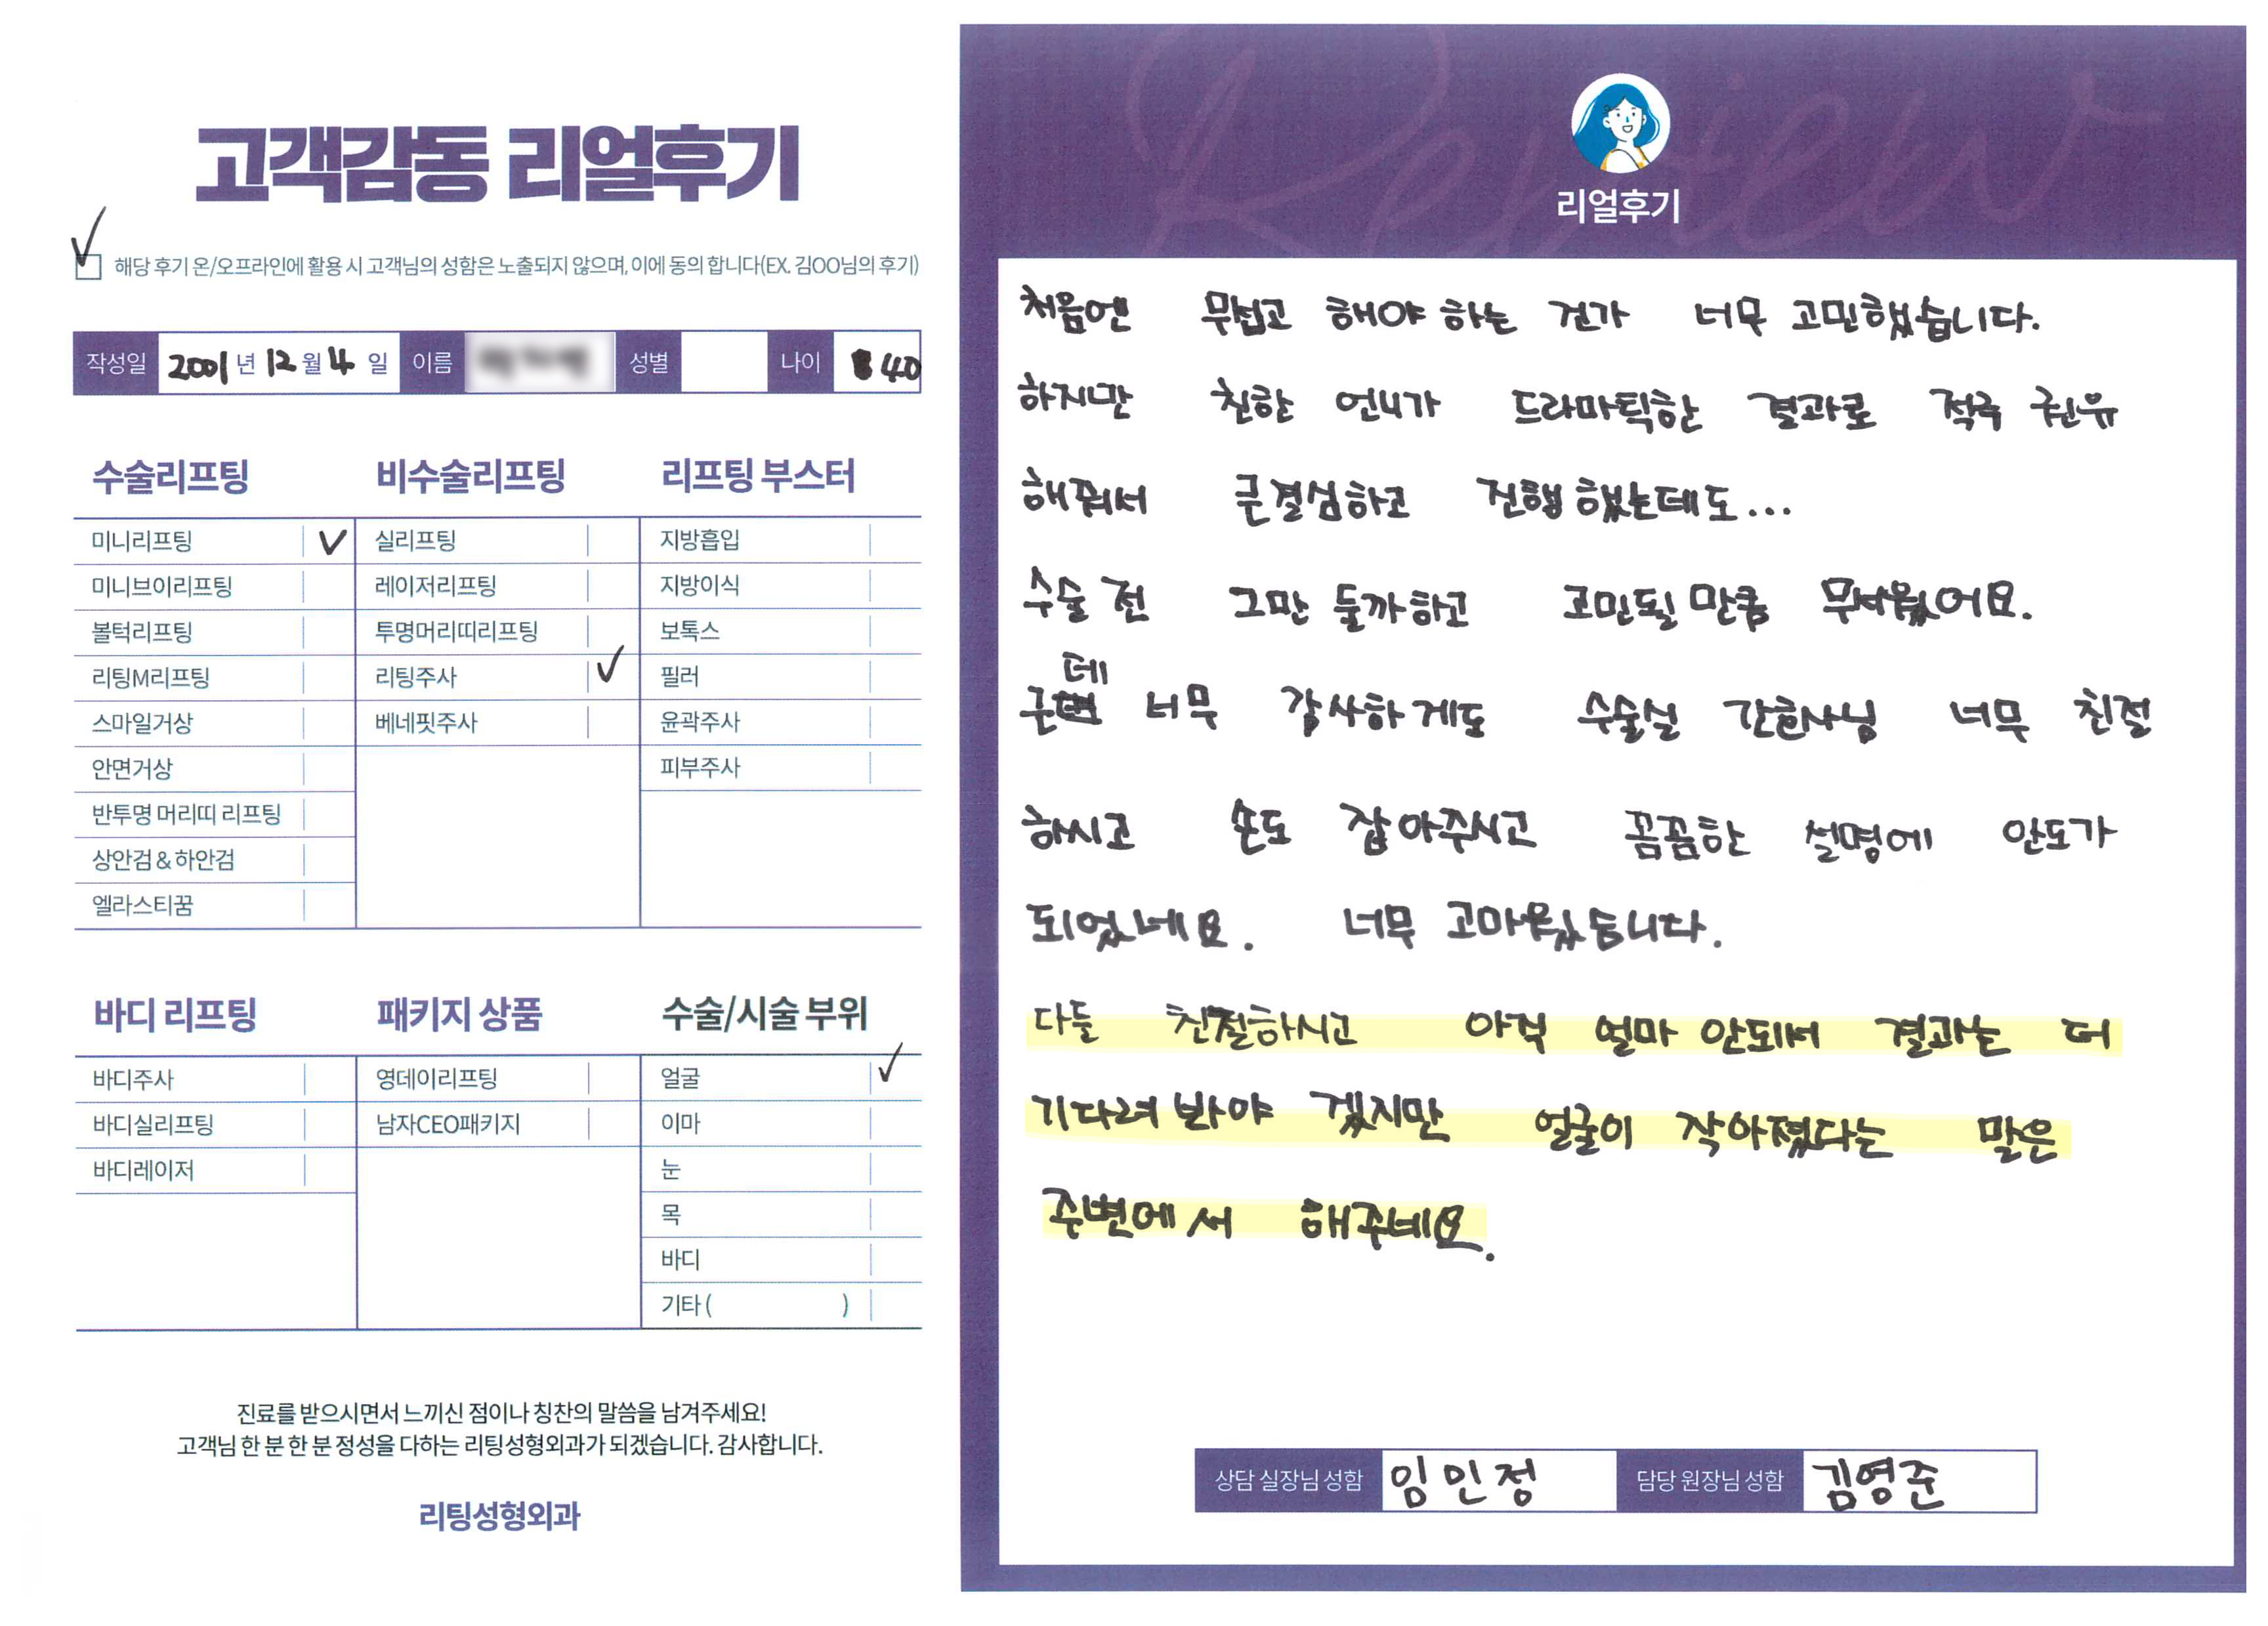 고객감동 리얼후기
✓
해당 후기 온/오프라인에 활용 시 고객님의 성함은 노출되지 않으며, 이에 동의 합니다(EX. 김OO님의 후기)
작성일 2001년 12월 4일 이름 성별 나이 40
수술리프팅 비수술리프팅 리프팅 부스터
미니리프팅 ✓ 실리프팅 지방흡입
미니브이리프팅 레이저리프팅 지방이식
볼턱리프팅 투명머리띠리프팅 보톡스
리팅M리프팅 리팅주사 ✓ 필러
스마일거상 베네핏주사 윤곽주사
안면거상 피부주사
반투명 머리띠 리프팅
상안검 & 하안검
엘라스티꿈
바디 리프팅 패키지 상품 수술/시술 부위
바디주사 영데이리프팅 얼굴 ✓
바디실리프팅 남자CEO패키지 이마
바디레이저 눈
목
바디
기타 ( )
진료를 받으시면서 느끼신 점이나 칭찬의 말씀을 남겨주세요!
고객님 한 분 한 분 정성을 다하는 리팅성형외과가 되겠습니다. 감사합니다.
리팅성형외과
Review
리얼후기
처음엔 무섭고 해야 하는 건가 너무 고민했습니다.
하지만 친한 언니가 드라마틱한 결과로 적극 권유
해줘서 큰결심하고 진행했는데도...
수술 전 그만 둘까하고 고민될 만큼 무서웠어요.
근데 너무 감사하게도 수술실 간호사님 너무 친절
하시고 손도 잡아주시고 꼼꼼한 설명에 안도가
되었네요. 너무 고마웠습니다.
다들 친절하시고 아직 얼마 안되서 결과는 더
기다려 봐야 겠지만 얼굴이 작아졌다는 말은
주변에서 해주네요.
상담 실장님 성함 임민정 담당 원장님 성함 김영준